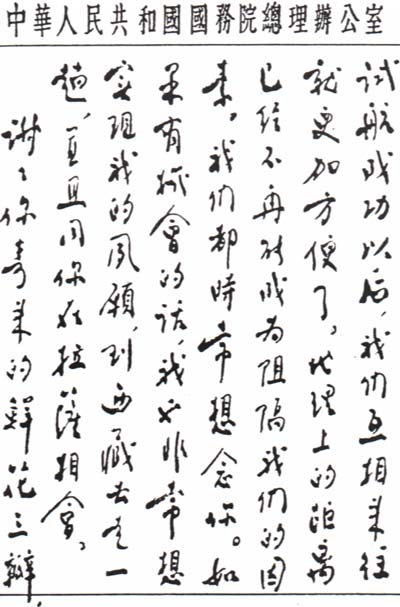 中華人民共和國國務院總理辦公室
试航成功以后，我们互相来往
就更加方便了。地理上的距离
已经不再能成为阻隔我们的因
素。我们都時常想念你。如
果有機會的话，我也非常想
实现我的夙愿，到西藏去走一
趟，并且同你在拉薩相會。
谢々你寄来的鲜花三瓣，